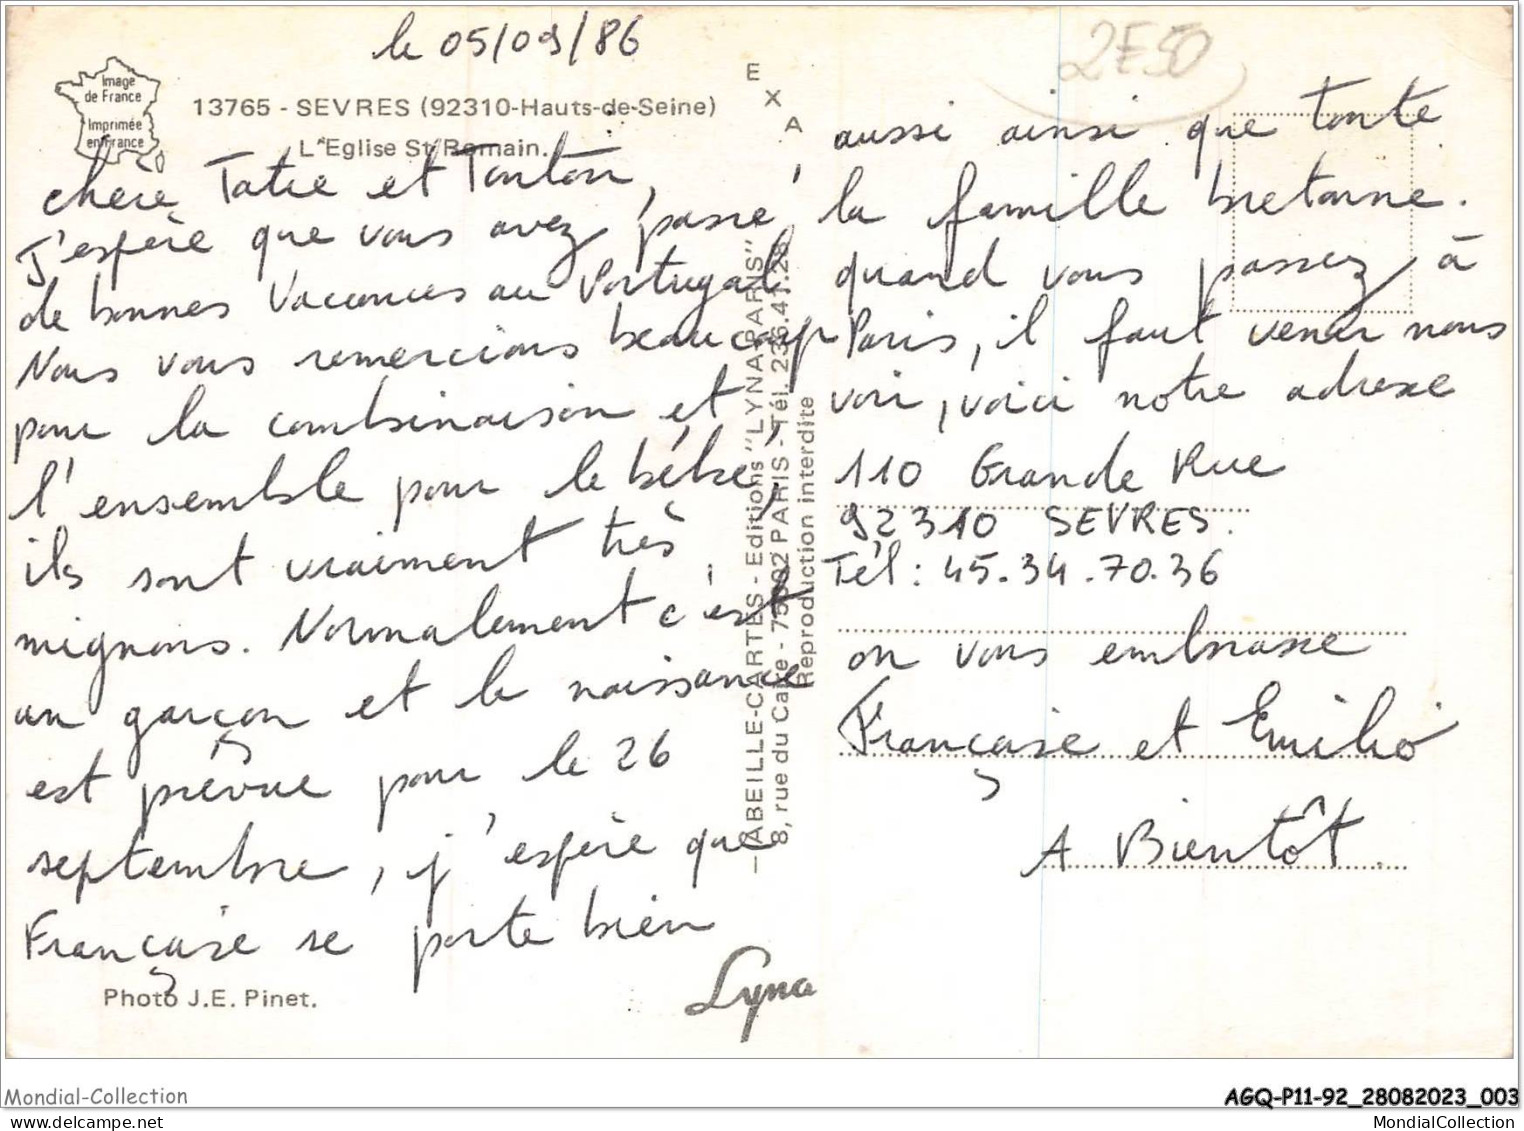 le 05/09/86
2E50
Image
de France
Imprimée
en France
13765 - SEVRES (92310-Hauts-de-Seine)
L'Eglise St Romain.
EXA
chère Tatie et Tonton,
J'espère que vous avez passé
de bonnes vacances au Portugal
Nous vous remercions beaucoup
pour la combinaison et
l'ensemble pour le bébé,
ils sont vraiment très
mignons. Normalement c'est
un garçon et la naissance
est prévue pour le 26
septembre, j'espère que
Françoise se porte bien
Photo J.E. Pinet.
ABEILLE-CARTES - Editions "LYNA PARIS"
8, rue du Caire - 75002 PARIS - Tél. 236.41.28
Reproduction interdite
Lyna
aussi ainsi que toute
la famille bretonne.
quand vous passez à
Paris, il faut venir nous
voir, voici notre adresse
110 Grande Rue
92310 SEVRES.
Tél : 45.34.70.36
on vous embrasse
Françoise et Emilio
A Bientôt.
Mondial-Collection
AGQ-P11-92_28082023_003
MondialCollection.com